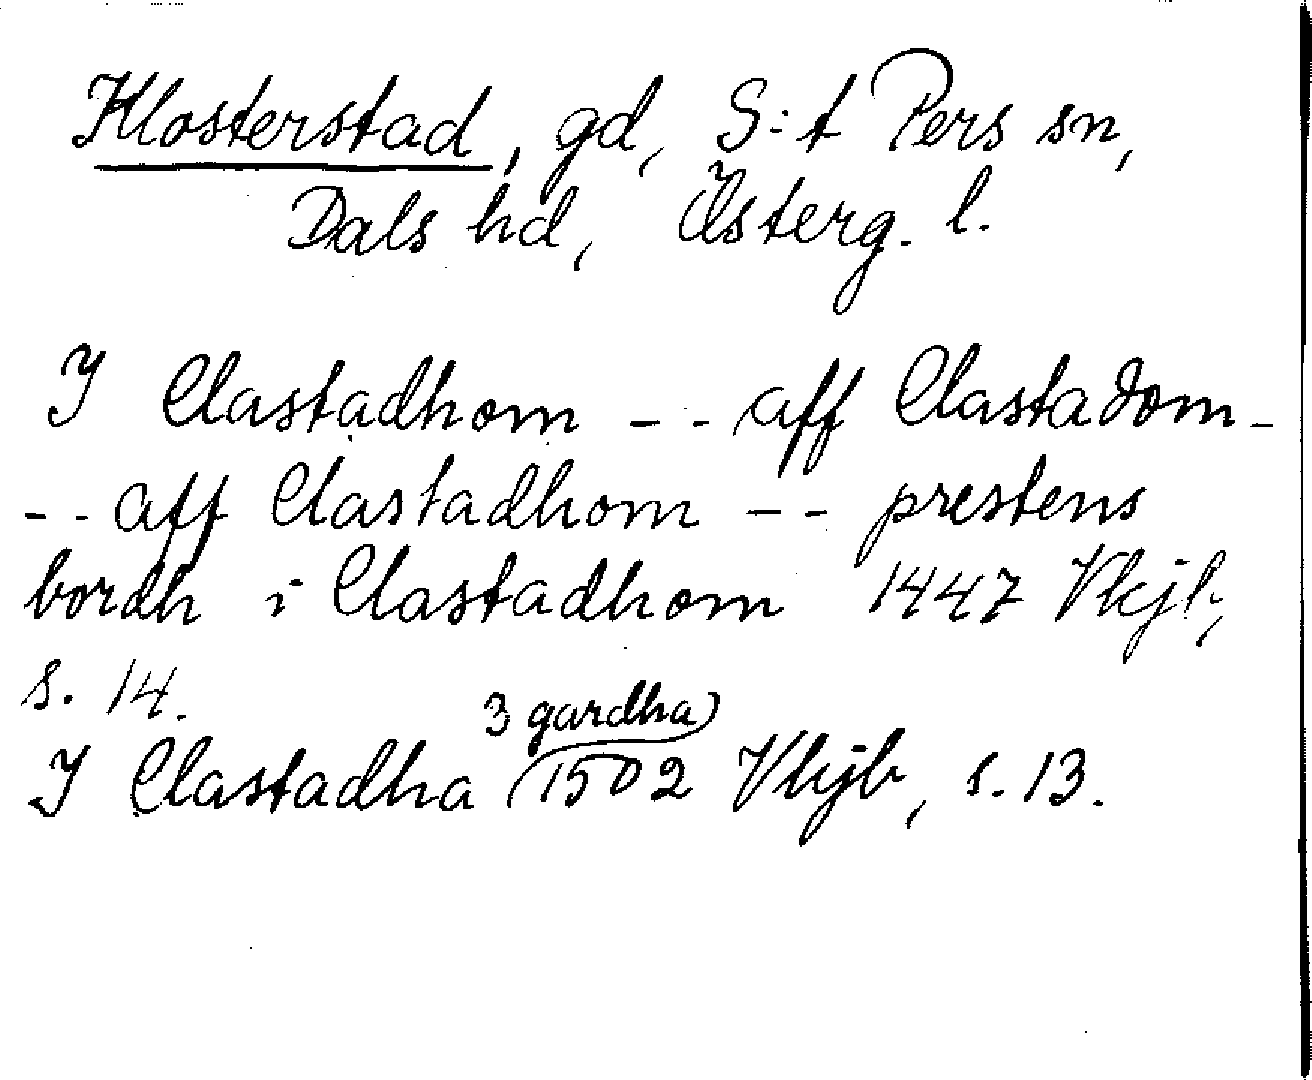 Klosterstad, gd, S:t Pers sn,
Dals hd, Österg. l.
I Clastadhom - - aff Clastadom -
- - aff Clastadhom - - prestens
bordh i Clastadhom 1447 Vkjb,
s. 14.
3 gardha
I Clastadha 1502 Vkjb, s. 13.